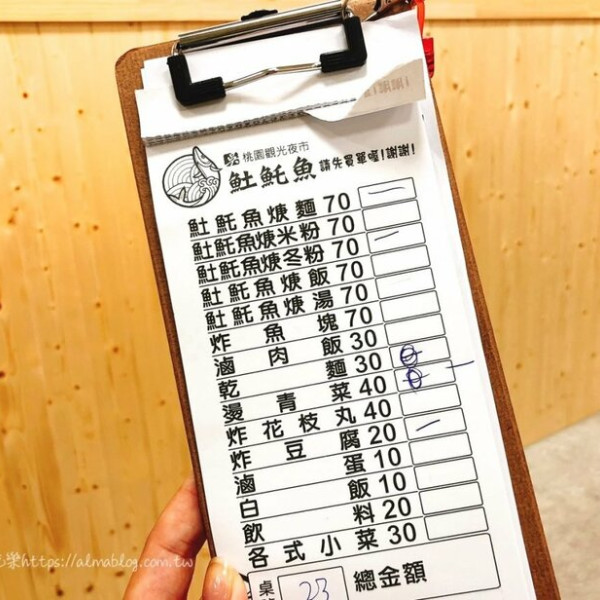 謝謝!
桃園觀光夜市
𩵚魠魚 請先買單喔!謝謝!
𩵚魠魚焿麵 70
𩵚魠魚焿米粉 70
𩵚魠魚焿冬粉 70
𩵚魠魚焿飯 70
𩵚魠魚焿湯 70
炸魚塊 70
滷肉飯 30
乾麵 30
燙青菜 40
炸花枝丸 40
炸豆腐 20
滷蛋 10
白飯 10
飲料 20
各式小菜 30
桌 23 總金額
樂https://almablog.com.tw